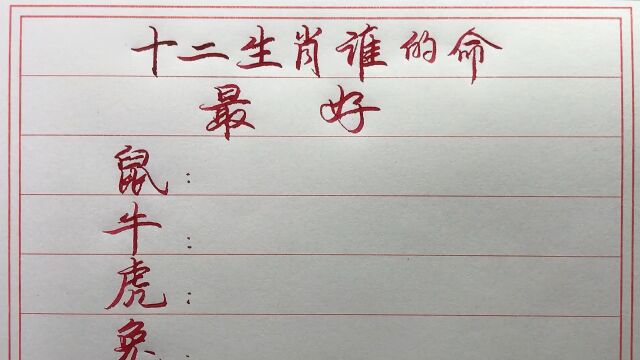 十二生肖谁的命
最好
鼠：
牛：
虎：
兔：